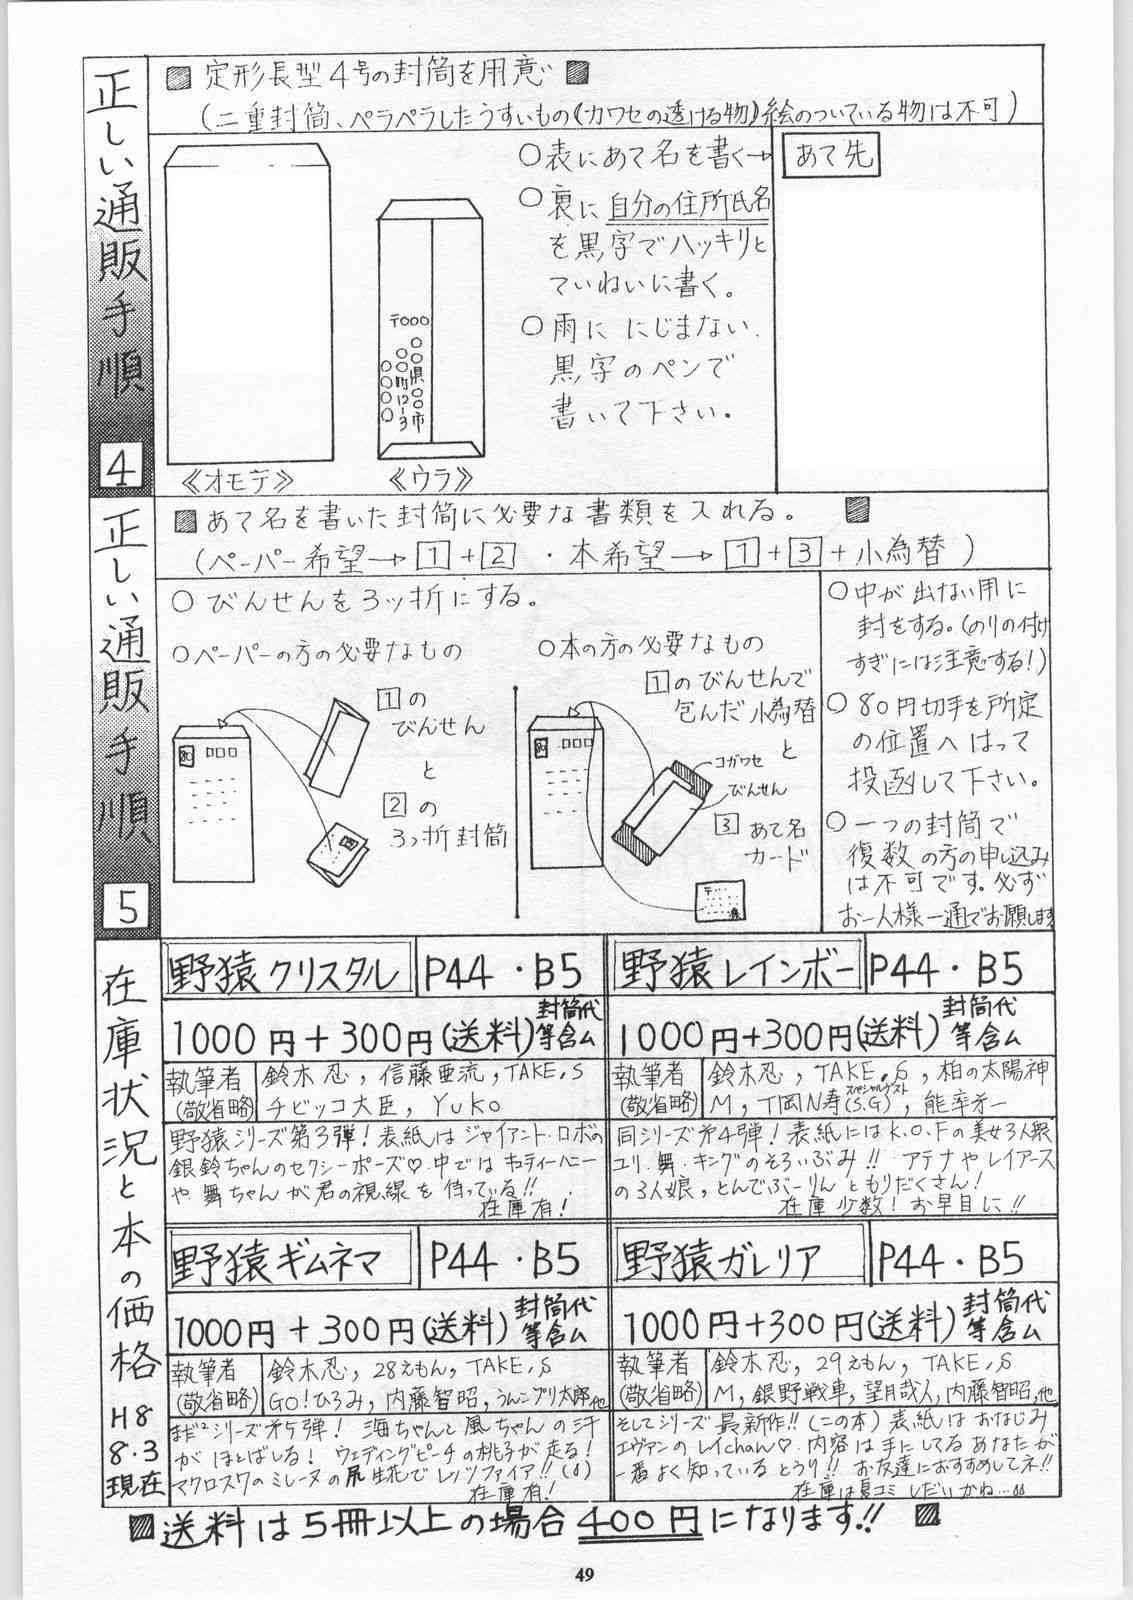 正しい通販手順 4
■ 定形長型4号の封筒を用意 ■
(二重封筒、ペラペラしたうすいもの《カワセの透ける物》絵のついている物は不可)
〒000
○○県○○市
○○町12-3
○○○○
《オモテ》
《ウラ》
○表にあて名を書く→
○裏に自分の住所氏名
を黒字でハッキリと
ていねいに書く。
○雨に にじまない
黒字のペンで
書いて下さい。
あて先
正しい通販手順 5
■ あて名を書いた封筒に必要な書類を入れる。 ■
(ペーパー希望→1+2 ・本希望→1+3+小為替)
○びんせんを3ッ折にする。
○ペーパーの方の必要なもの
1の
びんせん
と
2の
3っ折封筒
80
○本の方の必要なもの
1のびんせんで
包んだ小為替
と
コガワセ
びんせん
3あて名
カード
80
〒
○中が出ない用に
封をする。(のりの付け
すぎには注意する!)
○80円切手を所定
の位置へはって
投函して下さい。
○一つの封筒で
復数の方の申し込み
は不可です。必ず
お一人様一通でお願します
在庫状況と本の価格
H8
8.3
現在
野猿クリスタル P44・B5
1000円+300円(送料)封筒代等含ム
執筆者(敬省略)
鈴木忍, 信藤亜流, TAKE.S
チビッコ大臣, YUKO
野猿シリーズ第3弾! 表紙はジャイアント・ロボの
銀鈴ちゃんのセクシーポーズ♡ 中ではキューティーハニー
や舞ちゃんが君の視線を待っている!!
在庫有!
野猿レインボー P44・B5
1000円+300円(送料)封筒代等含ム
執筆者(敬省略)
鈴木忍, TAKE.S, 柏の太陽神
M, T岡N寿(S.G)スペシャルゲスト, 能率矛一
同シリーズ矛4弾! 表紙にはK.O.Fの美女3人衆
ユリ、舞、キングのそろいぶみ!! アテナやレイアース
の3人娘, とんでぶーりんともりだくさん!
在庫少数! お早目に!!
野猿ギムネマ P44・B5
1000円+300円(送料)封筒代等含ム
執筆者(敬省略)
鈴木忍, 28えもん, TAKE.S
GO!ひろみ, 内藤智昭, うんこブリ太郎, 他
まだシリーズ矛5弾! 海ちゃんと風ちゃんの汗
がほとばしる! ウェディングピーチの桃子が走る!
マクロス7のミレーヌの尻生花でレッツファイア!!
在庫有!
野猿ガレリア P44・B5
1000円+300円(送料)封筒代等含ム
執筆者(敬省略)
鈴木忍, 29えもん, TAKE.S
M, 銀野戦車, 望月哉人, 内藤智昭, 他
そしてシリーズ最新作!!(この本)表紙はおなじみ
エヴァンのレイchan♡ 内容は手にしてるあなたが
一番よく知っているとうり!! お友達におすすめしてネ!!
在庫は夏コミしだいかね…
■送料は5冊以上の場合400円になります!! ■
49